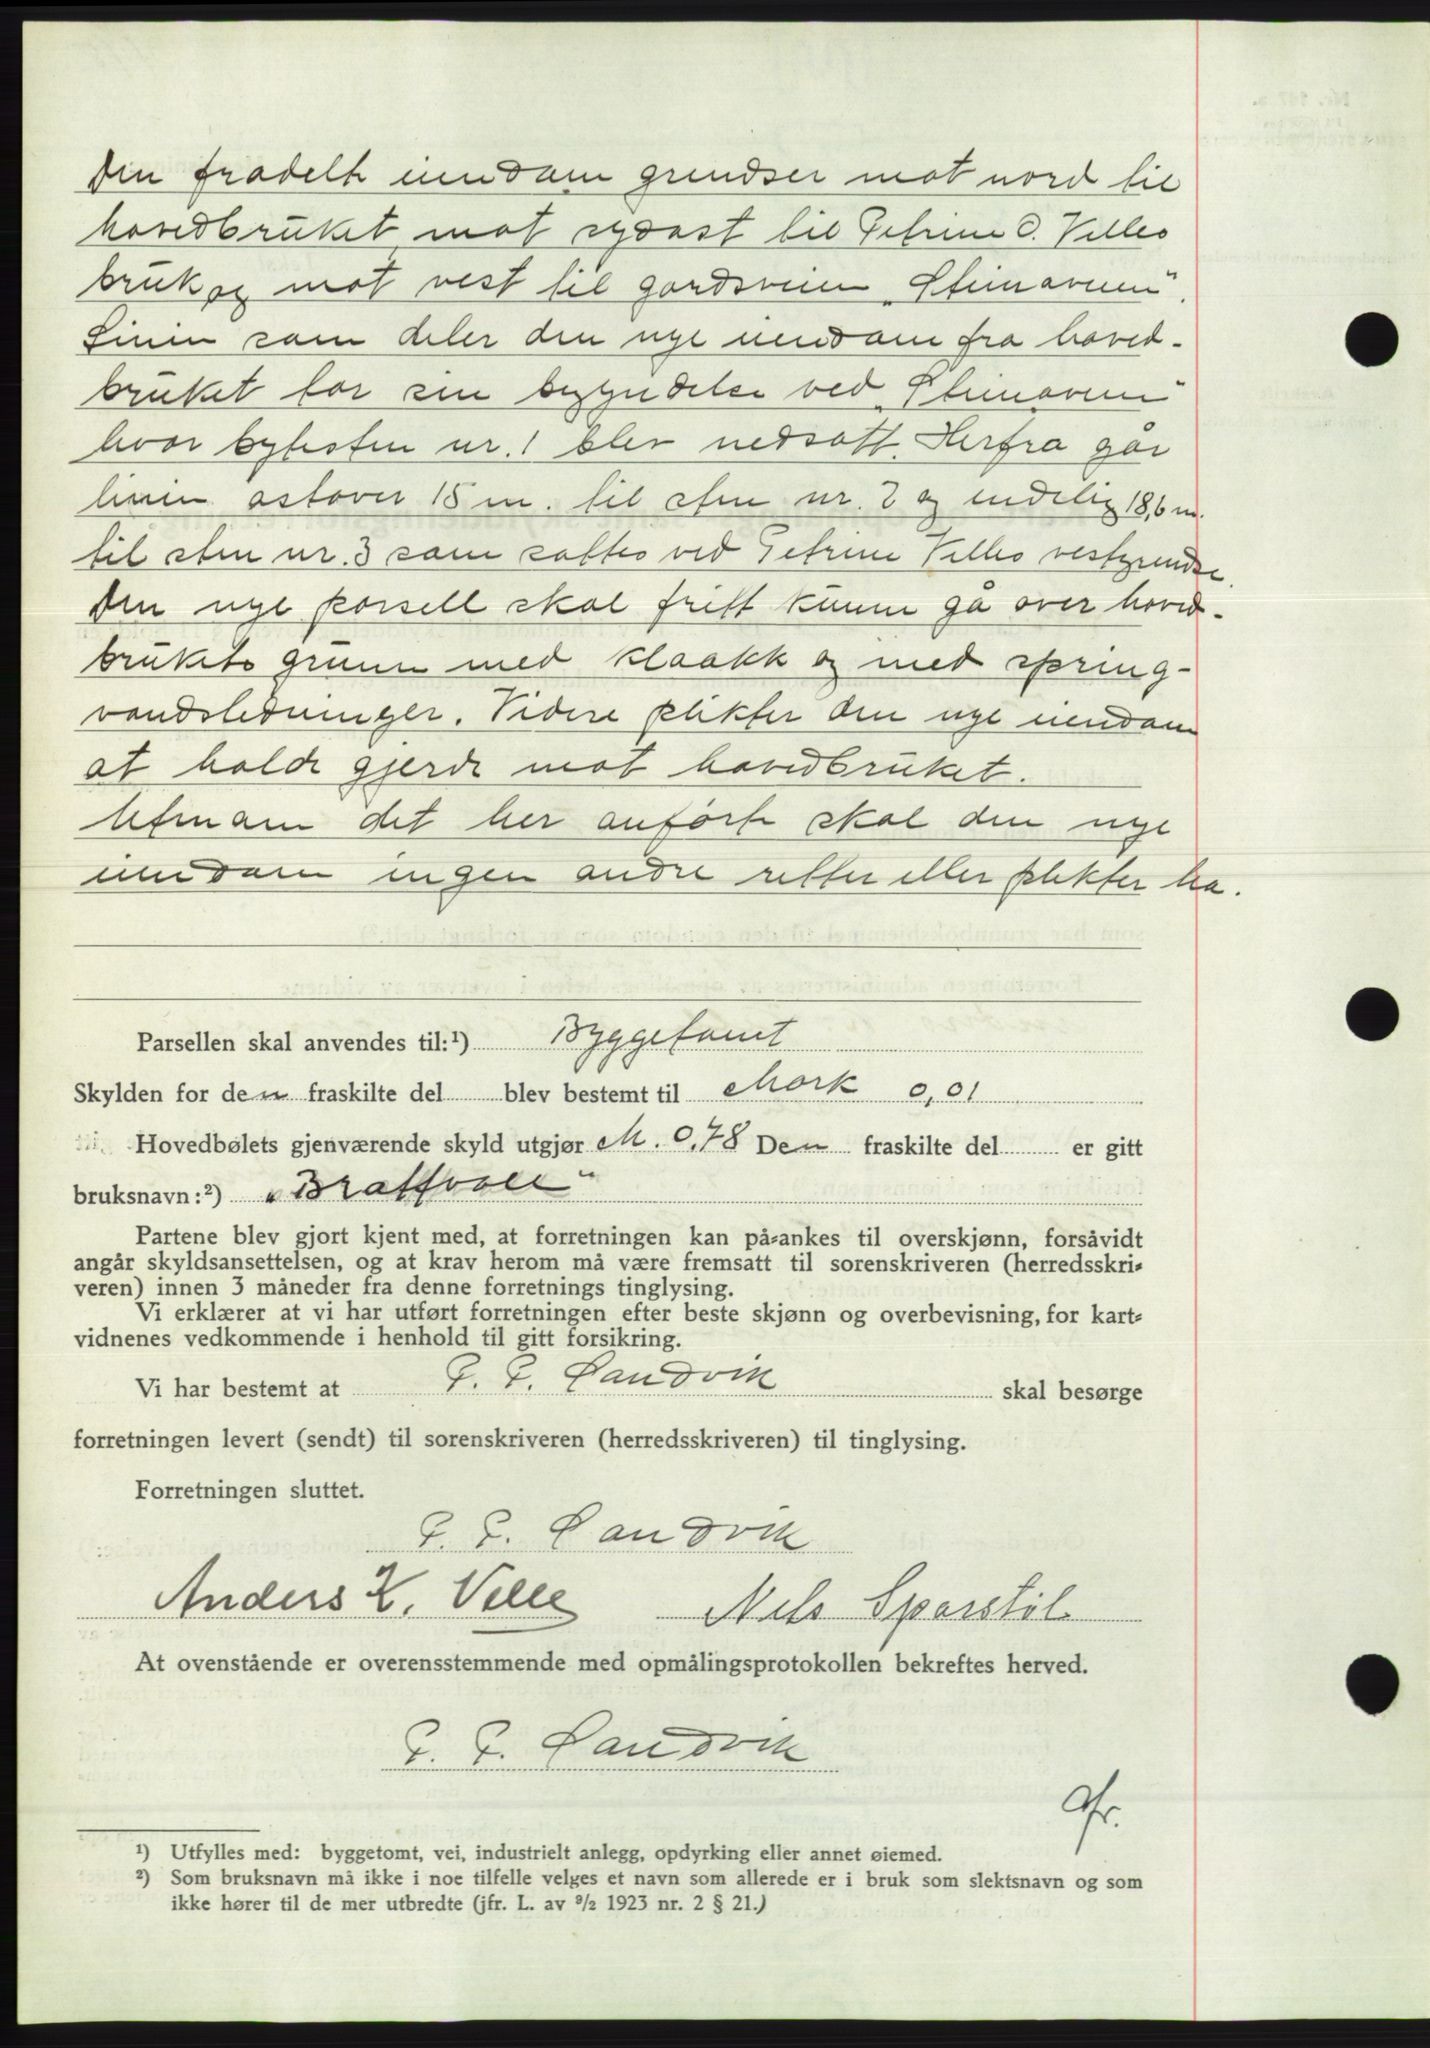 Den fradelte eiendom grendser mot nord til
hovedbruket, mot sydøst til Petrine O. Velles
bruk og mot vest til gardsveien „Steinaveien“.
Linien som deler den nye eiendom fra hoved-
bruket tar sin begyndelse ved „Steinaveien“
hvor bytesten nr. 1 blev nedsatt. Herfra går
linien østover 15 m. til sten nr. 2 og endelig 18,6 m.
til sten nr. 3 som sattes ved Petrine Velles vestgrendse.
Den nye parsell skal fritt kunne gå over hoved-
brukets grunn med kloakk og med spring-
vandsledninger. Videre plikter den nye eiendom
at holde gjerde mot hovedbruket.
Utenom det her anførte skal den nye
eiendom ingen andre retter eller plikter ha.
Parsellen skal anvendes til:¹) Byggetomt
Skylden for den fraskilte del blev bestemt til Mark 0,01
Hovedbølets gjenværende skyld utgjør M. 0,78 Den fraskilte del er gitt
bruksnavn:²) „Brattvoll“
Partene blev gjort kjent med, at forretningen kan på-ankes til overskjønn, forsåvidt
angår skyldsansettelsen, og at krav herom må være fremsatt til sorenskriveren (herredsskri-
veren) innen 3 måneder fra denne forretnings tinglysing.
Vi erklærer at vi har utført forretningen efter beste skjønn og overbevisning, for kart-
vidnenes vedkommende i henhold til gitt forsikring.
Vi har bestemt at P. P. Sandvik skal besørge
forretningen levert (sendt) til sorenskriveren (herredsskriveren) til tinglysing.
Forretningen sluttet.
P. P. Sandvik
Anders K. Velle Nels Sporstøl
At ovenstående er overensstemmende med opmålingsprotokollen bekreftes herved.
P. P. Sandvik
¹) Utfylles med: byggetomt, vei, industrielt anlegg, opdyrking eller annet øiemed.
²) Som bruksnavn må ikke i noe tilfelle velges et navn som allerede er i bruk som slektsnavn og som
ikke hører til de mer utbredte (jfr. L. av ⁹/₂ 1923 nr. 2 § 21.)